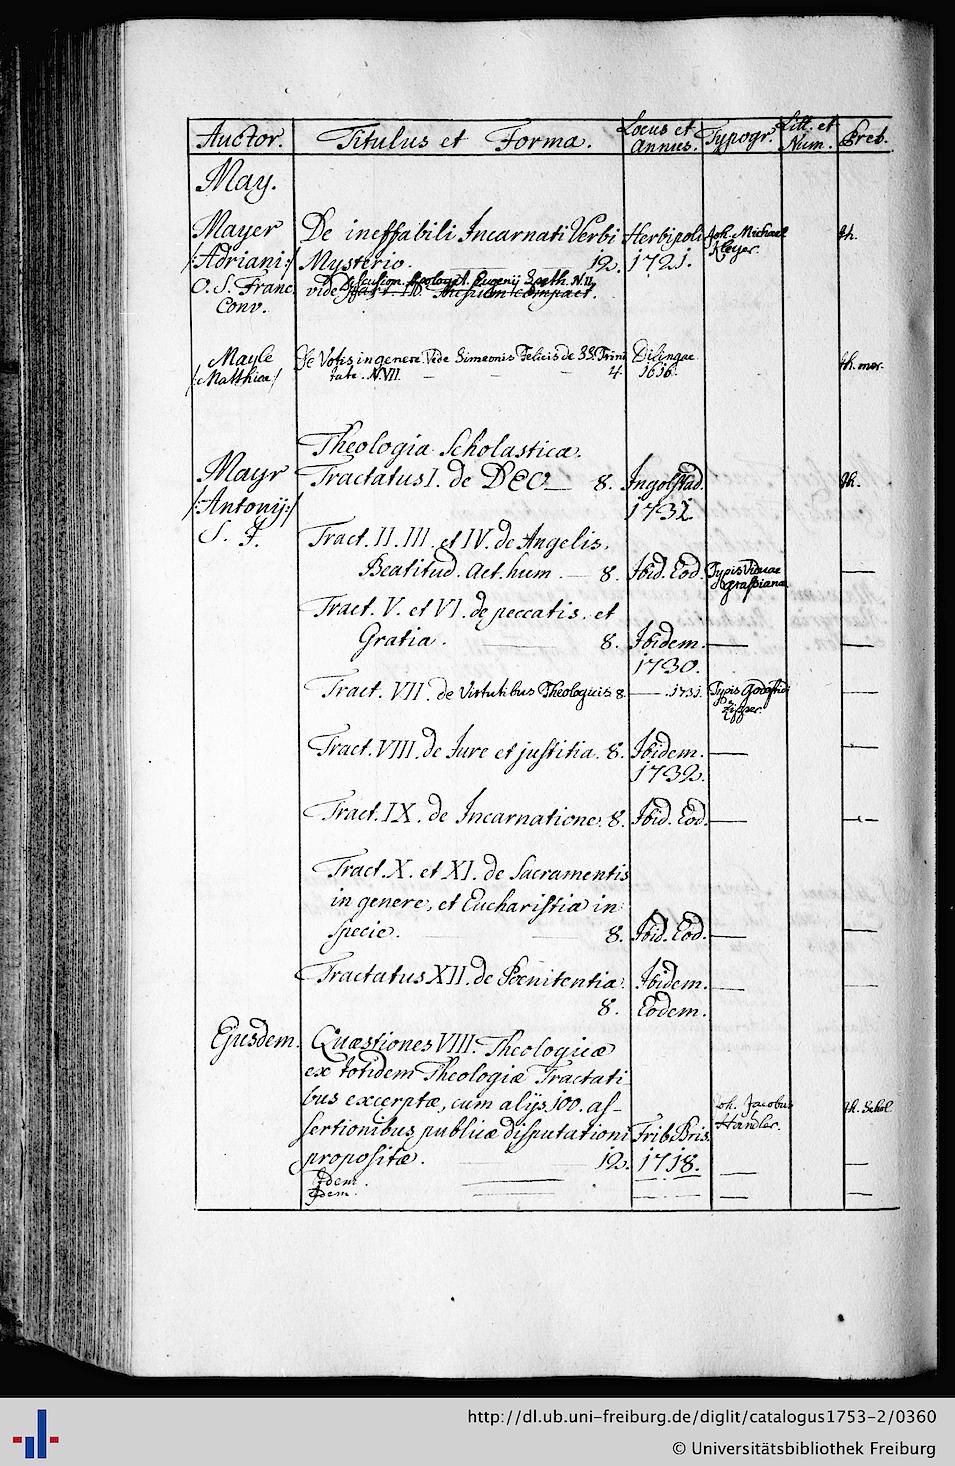 Auctor. Titulus et Forma. Locus et Annus. Typogr. Litt. et Num. Pret.
May.
Mayer De ineffabili Incarnati Verbi Herbipoli Joh. Michael Kleyer. th.
/:Adriani:/ Mysterio. 12. 1721.
O. S. Franc. Conv. vide Discussion. Apologet. Eugenij N. 11.
Mayle De Votis in genere. Vide Simeonis Felicis de SS. Trini Dilingae th. mor.
/:Matthiae:/ tate. N. VII. — — — 4. 1616.
Theologia Scholastica.
Mayr Tractatus I. de DEO — 8. Ingolstad. th.
/:Antonij:/ 1732
S. J. Tract. II. III. et IV. de Angelis,
Beatitud. Act. hum. — 8. Ibid. Eod. Typis Viduae Grassianae —
Tract. V. et VI. de peccatis, et
Gratia. — 8. Ibidem. — —
1730.
Tract. VII. de Virtutibus Theologicis 8. — 1731. Typis —
Tract. VIII. de Jure et justitia. 8. Ibidem. — —
1732.
Tract. IX. de Incarnatione. 8. Ibid. Eod. — —
Tract. X. et XI. de Sacramentis
in genere, et Eucharistia in
specie. — — 8. Ibid. Eod. — —
Tractatus XII. de Poenitentia. Ibidem. — —
8. Eodem.
Ejusdem. Quaestiones VIII. Theologicae
ex totidem Theologiae Tractati
bus excerptae, cum alijs 100. as- Joh. Jacobus Handler. th. Schol.
sertionibus publicae disputationi Frib. Bris.
propositae. — — 12. 1718. — —
Idem. — — — —
Idem. — — — —
http://dl.ub.uni-freiburg.de/diglit/catalogus1753-2/0360
© Universitätsbibliothek Freiburg